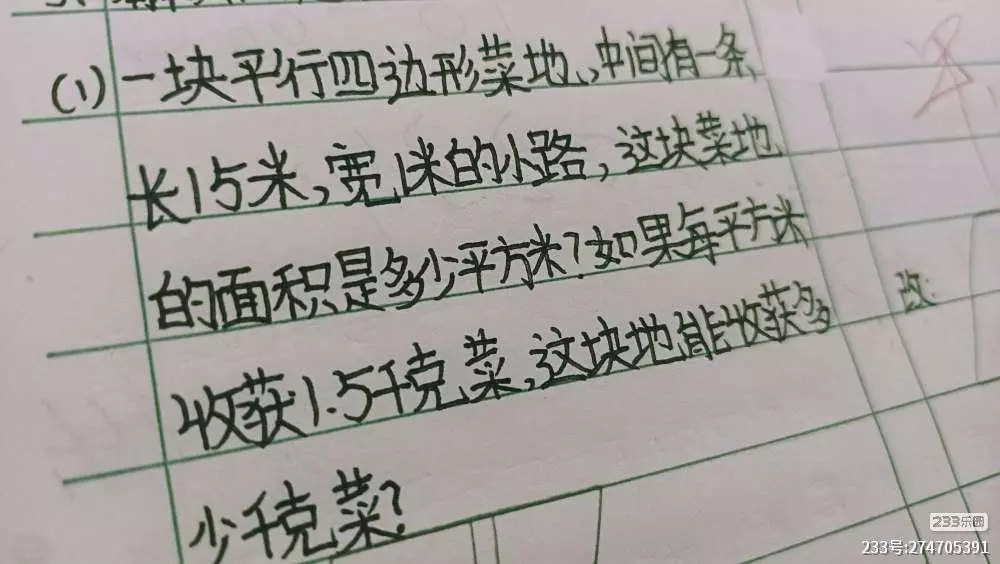 (1) 一块平行四边形菜地,中间有一条
长15米,宽1米的小路,这块菜地
的面积是多少平方米?如果每平方米
收获1.5千克菜,这块地能收获多
改:
少千克菜?
233乐园
233号:274705391